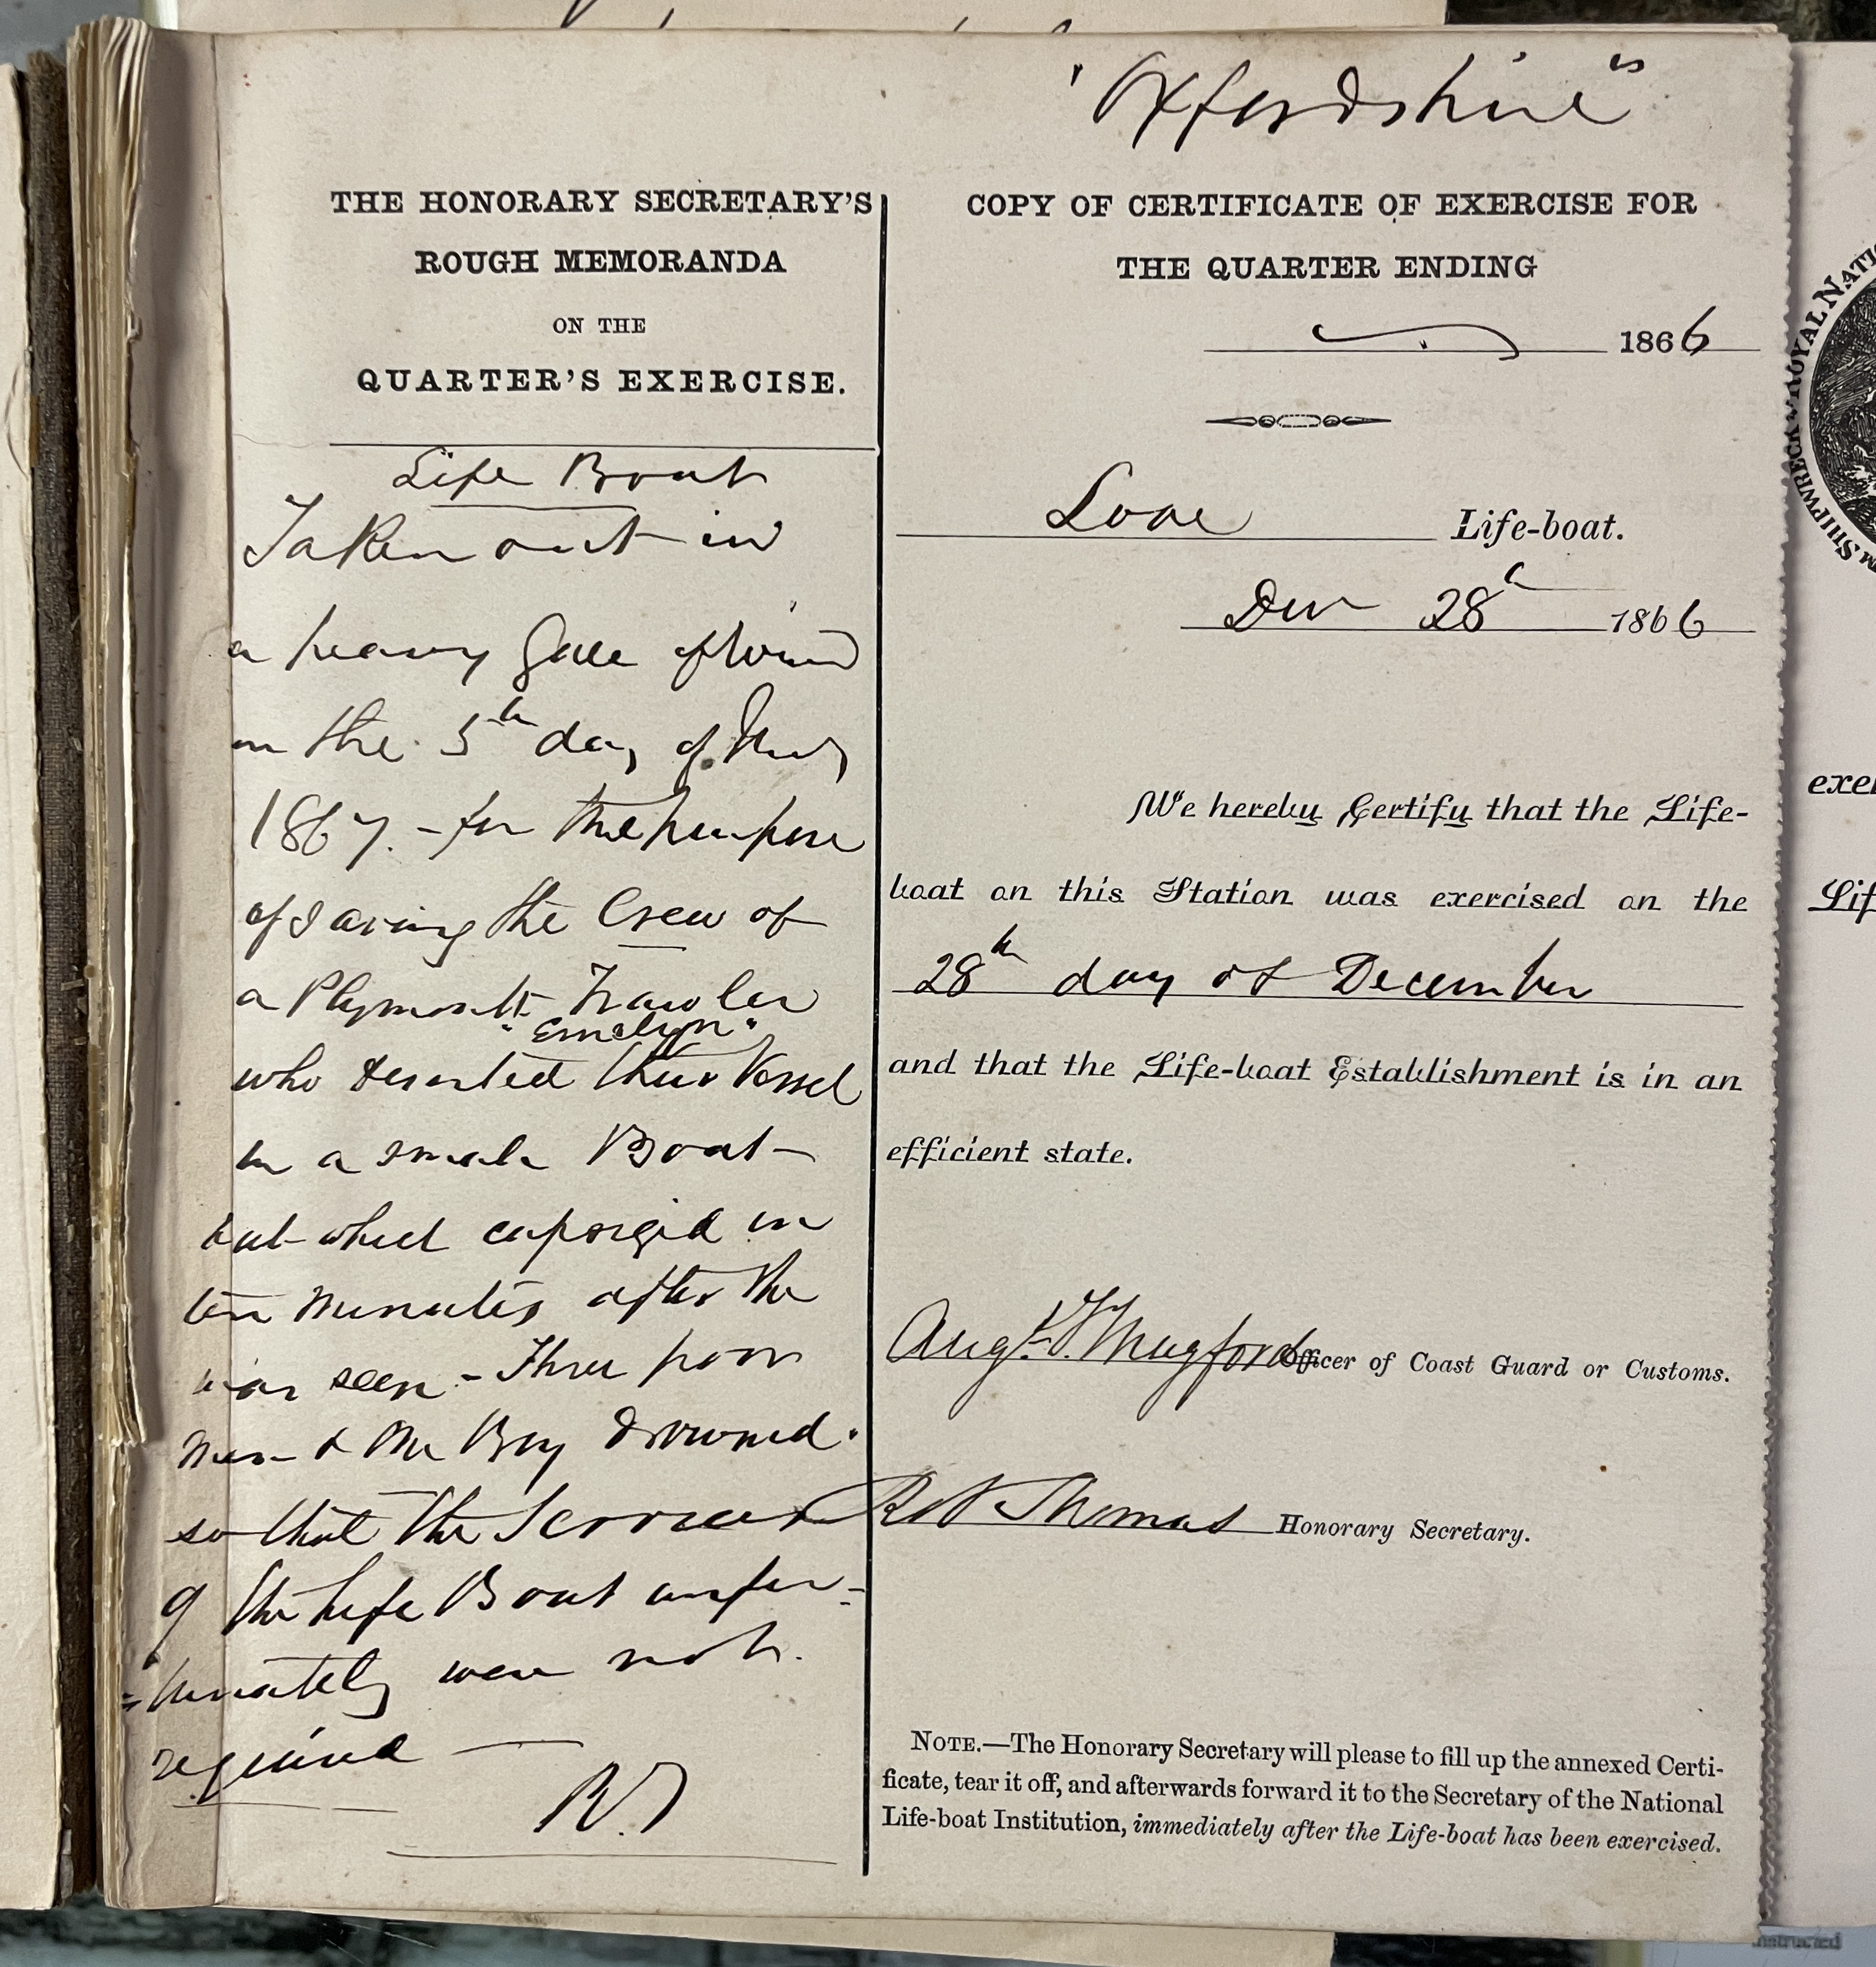 "Oxfordshire"
THE HONORARY SECRETARY'S
ROUGH MEMORANDA
ON THE
QUARTER'S EXERCISE.
Life Boat
Taken out in
a heavy Gale of Wind
on the 5th day of
1867. - for the purpose
of saving the Crew of
a Plymouth Trawler
"Emelyn"
who deserted their Vessel
in a small Boat
but which capsized in
ten minutes after she
was seen - Three poor
Men & One Boy drowned.
so that the Services
of the Life Boat unfor=
=tunately were not
required —
R.T
COPY OF CERTIFICATE OF EXERCISE FOR
THE QUARTER ENDING
1866
Looe Life-boat.
Decr 28th 1866
We hereby Certify that the Life-
boat on this Station was exercised on the
28th day of December
and that the Life-boat Establishment is in an
efficient state.
Augt. T. Mugford Officer of Coast Guard or Customs.
Robt Thomas Honorary Secretary.
NOTE.—The Honorary Secretary will please to fill up the annexed Certi-
ficate, tear it off, and afterwards forward it to the Secretary of the National
Life-boat Institution, immediately after the Life-boat has been exercised.
exer
Lif
ROYAL NATI
M SHIPWRECK